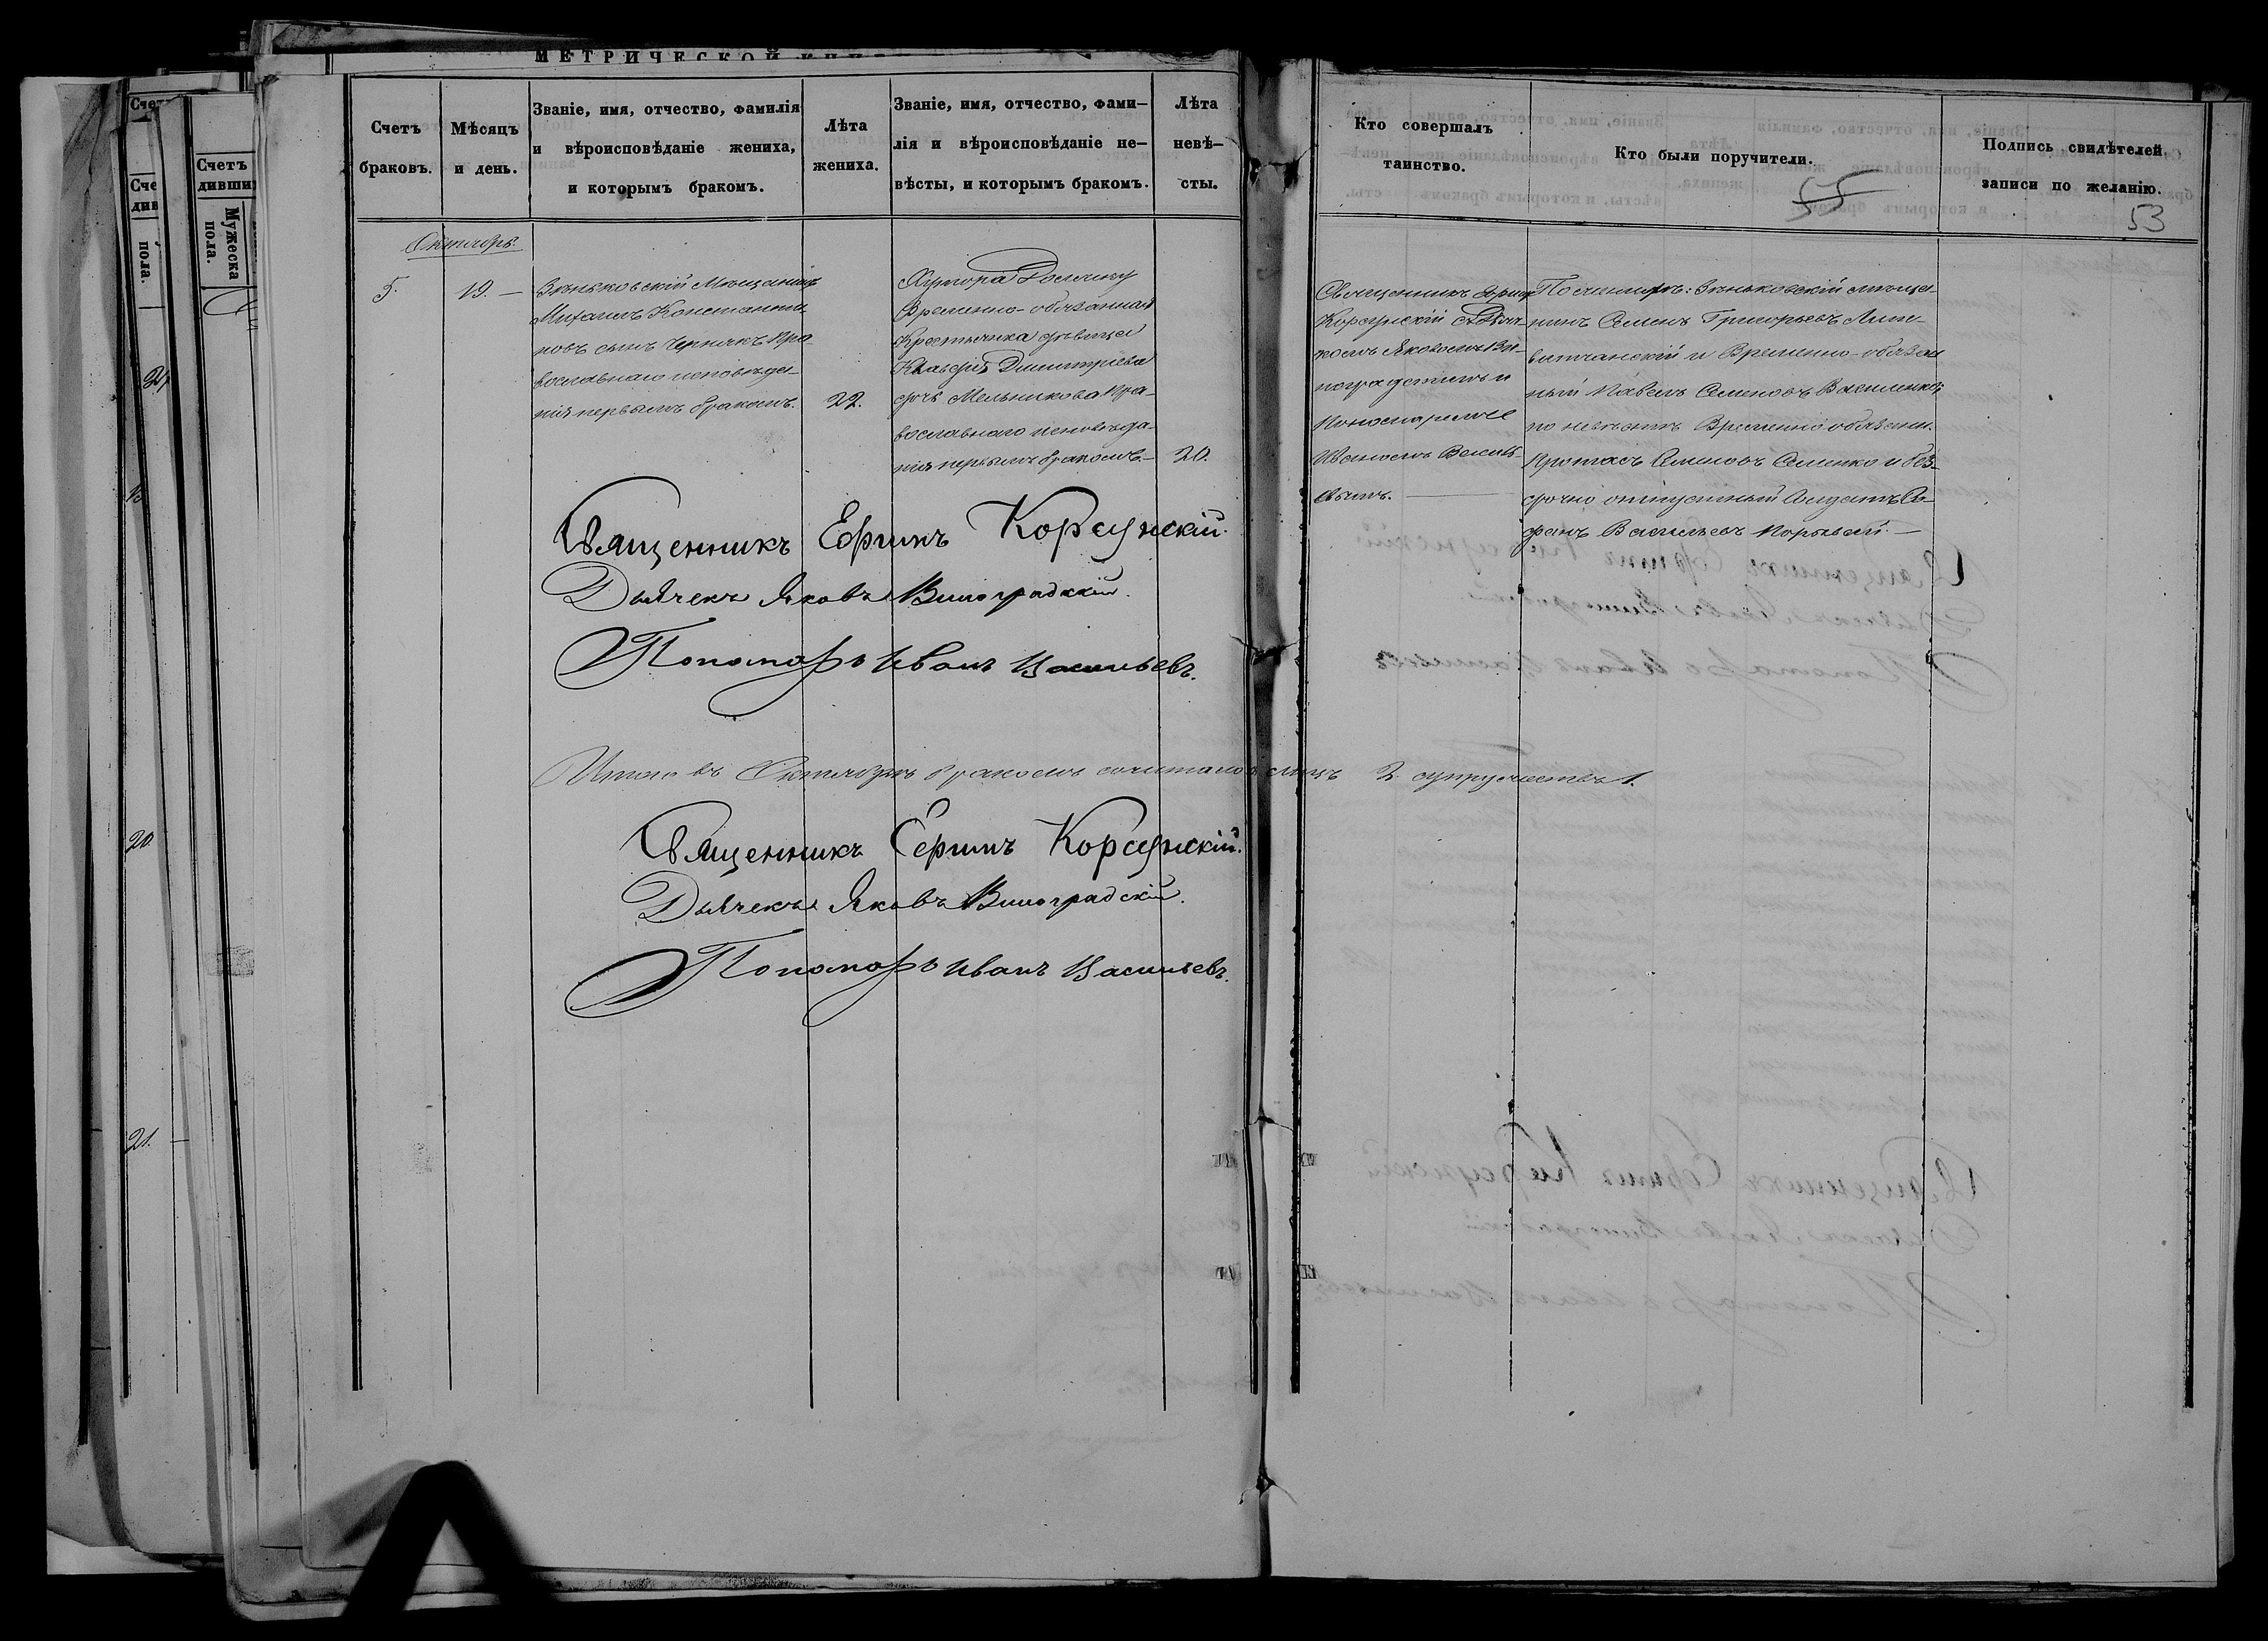 МЕТРИЧЕСКОЙ
Счетъ
браковъ.
Мѣсяцъ
и день.
Званіе, имя, отчество, фамилія
и вѣроисповѣданіе жениха,
и которымъ бракомъ.
Лѣта
жениха.
Званіе, имя, отчество, фами-
лія и вѣроисповѣданіе не-
вѣсты, и которымъ бракомъ.
Лѣта
невѣ-
сты.
Октябрь.
5.
19. —
Зѣньковскій Мѣщанинъ
Михаилъ Константи-
новъ сынъ Чернякъ Пра-
вославнаго исповѣда-
нія первымъ бракомъ.
22.
Хутора
Временно-обязанная
Крестьянка дѣвица
Клавдія Димитріева
дочь Мельникова Пра-
вославнаго исповѣда-
нія первымъ бракомъ. —
20.
Священникъ Ефимъ Корсунскій.
Дьячекъ Яковъ Виноградскій.
Пономарь Иванъ Васильевъ.
Итого въ Октябрѣ бракомъ сочиталось лицъ 2. супружествъ 1.
Священникъ Ефимъ Корсунскій.
Дьячекъ Яковъ Виноградскій.
Пономарь Иванъ Васильевъ.
Кто совершалъ
таинство.
Кто были поручители.
Подпись свидѣтелей
записи по желанію.
55
53
Священникъ Ефим
Корсунскій съ Дьяч-
комъ Яковомъ Ви-
ноградскимъ и
Пономаремъ
Иваномъ Василь-
евымъ. —
По женихѣ: Зѣньковскій мѣща-
нинъ Семенъ Григорьевъ
и Временно-обязан
ный Павелъ Семеновъ Василенко;
по невѣстѣ Временно обязанн.
Протасъ Семеновъ Семенко и без-
срочно отпускный Солдатъ Сте-
фанъ Васильевъ
Счетъ
дивши
Мужеска
пола.
Сче
див
пола.
20.
21. —